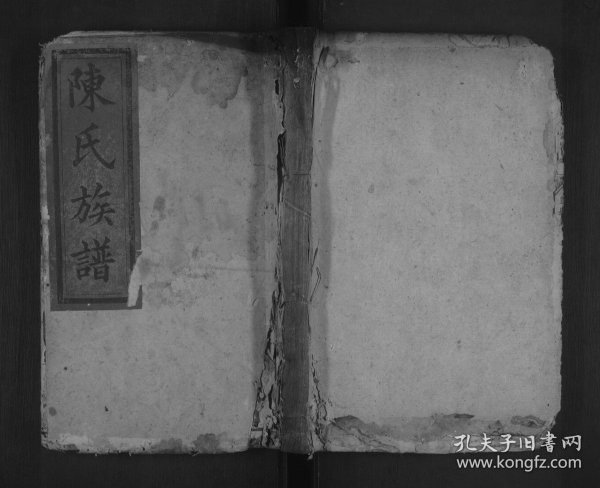 陳氏族譜
孔夫子旧書网
www.kongfz.com